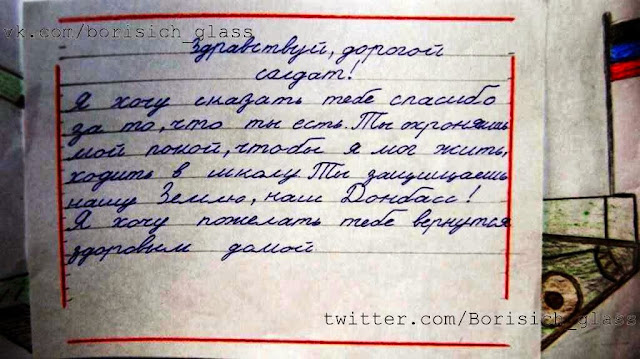 vk.com/borisich_glass
Здравствуй, дорогой
солдат!
Я хочу сказать тебе спасибо
за то, что ты есть. Ты охроняешь
мой покой, чтобы я мог жить,
ходить в школу. Ты защищаешь
нашу Землю, наш Донбасс!
Я хочу пожелать тебе вернутся
здоровым домой
twitter.com/Borisich_glass